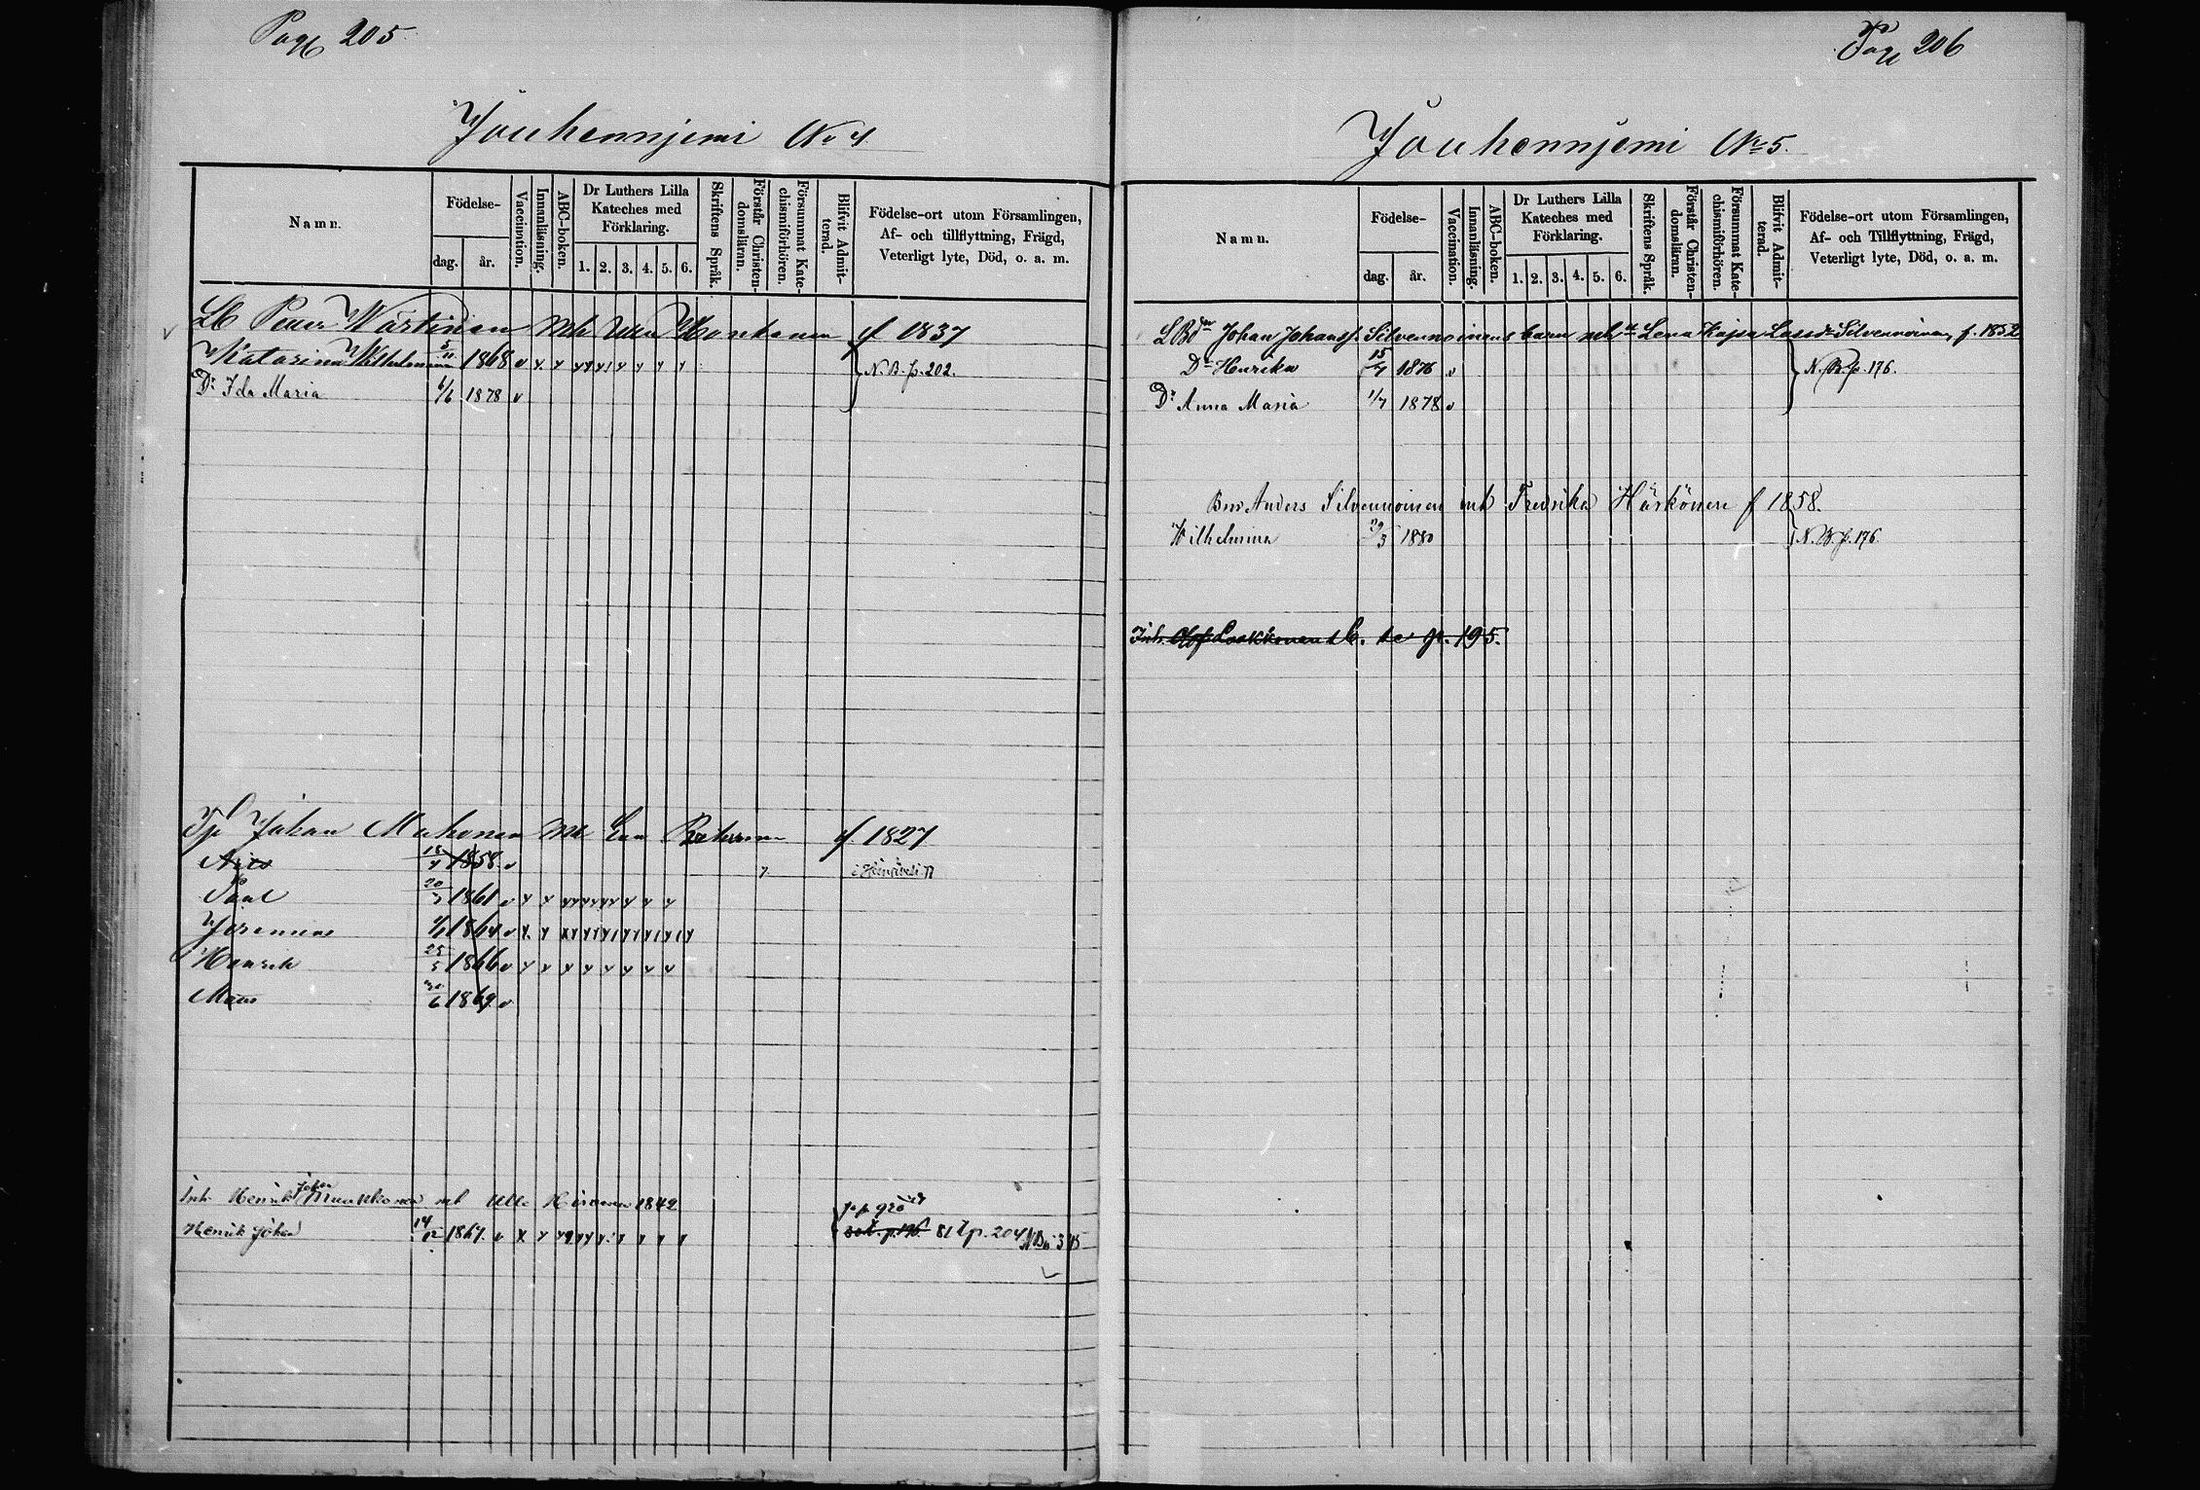 Pag 205
Jouhennjemi No 4
Namn.
Födelse-
dag.
år.
Vaccination.
Innanläsning.
ABC-boken.
Dr Luthers Lilla
Kateches med
Förklaring.
1. 2. 3. 4. 5. 6.
Skriftens Språk.
Förstår Christen-
domsläran.
Försummat Kate-
chismiförhören.
Blifvit Admit-
terad.
Födelse-ort utom Församlingen,
Af- och tillflyttning, Frägd,
Veterligt lyte, Död, o. a. m.
Lb Petter Wartinen mh f 1837
Katarina Wilhelmina 5/11 1868 v N. B. p. 202.
Dr Ida Maria 6/6 1878 v
Johan Makonen mh Eva f. 1827
18/4 1858 v
Paal 20/3 1861 v
Jeremias 1864 v
Henrik 25/5 1866 v
1869 v
Inh Henrik Johan mh Ulla Hirvonen 1842
Henrik Johan 14/12 1867. v 81 p. 204
Pag 206
Jouhennjemi No 5.
Namn.
Födelse-
dag.
år.
Vaccination.
Innanläsning.
ABC-boken.
Dr Luthers Lilla
Kateches med
Förklaring.
1. 2. 3. 4. 5. 6.
Skriftens Språk.
Förstår Christen-
domsläran.
Försummat Kate-
chismiförhören.
Blifvit Admit-
terad.
Födelse-ort utom Församlingen,
Af- och Tillflyttning, Frägd,
Veterligt lyte, Död, o. a. m.
Johan Johanss. Silvennoinens barn mh Lena Kajsa Lassdr Silvennoinen, f. 1852
Dr Henrika 15/7 1876 v N. B. p. 176.
Dr Anna Maria 1/7 1878 v
Anders Silvennoinen mh Fredrika Härkönen f 1858.
Wilhelmina 1880 N. B. p. 176.
Inh. Olof Laakkonens b. se p. 195.